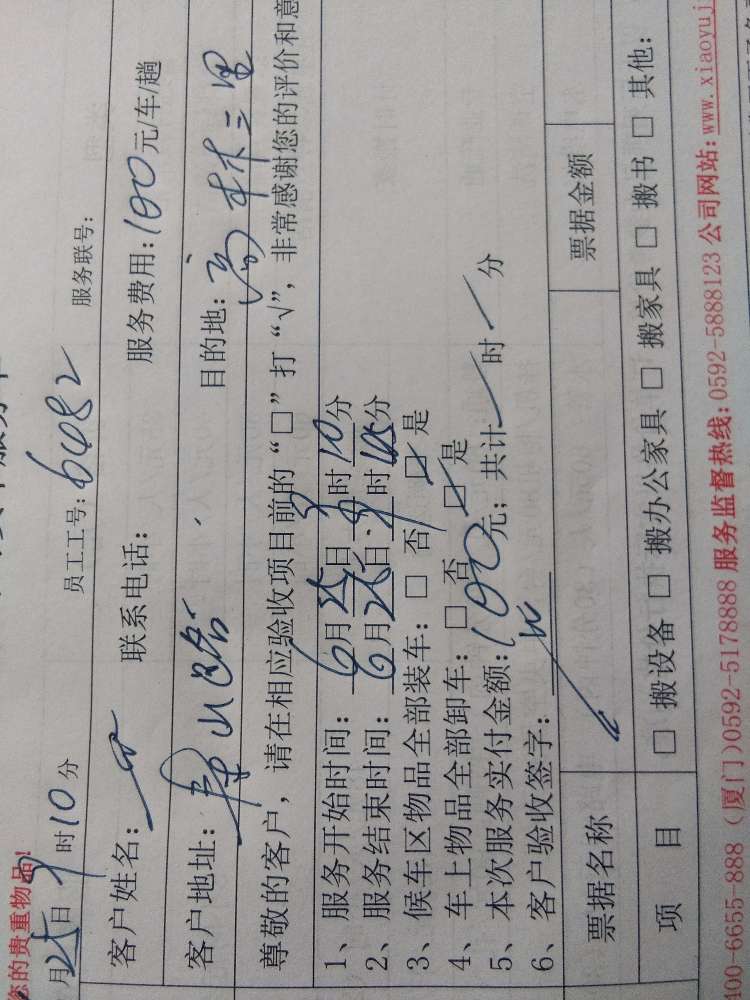 您的贵重物品!
月25日9时10分 员工工号:6482 服务联号:
客户姓名: 联系电话: 服务费用:100元/车/趟
客户地址: 目的地:高林三里
尊敬的客户,请在相应验收项目前的“□”打“√”,非常感谢您的评价和意
1、服务开始时间:6月25日9时10分
2、服务结束时间:6月25日9时45分
3、候车区物品全部装车:□否 ☑是
4、车上物品全部卸车:□否 ☑是
5、本次服务实付金额:100元;共计 时 分
6、客户验收签字:
票据名称 票据金额
项目 □搬设备 □搬办公家具 □搬家具 □搬书 □其他:
400-6655-888 (厦门)0592-5178888 服务监督热线:0592-5888123 公司网站:www.xiaoyuj